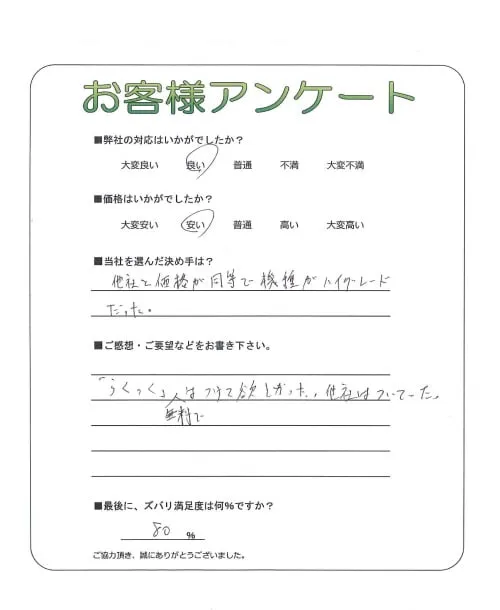 お客様アンケート
■弊社の対応はいかがでしたか?
大変良い 良い 普通 不満 大変不満
■価格はいかがでしたか?
大変安い 安い 普通 高い 大変高い
■当社を選んだ決め手は?
他社と価格が同等で機種がハイグレード
だった。
■ご感想・ご要望などをお書き下さい。
「らくっく」は つけて欲しかった。他社はついてーた。
無料で
■最後に、ズバリ満足度は何%ですか?
80 %
ご協力頂き、誠にありがとうございました。